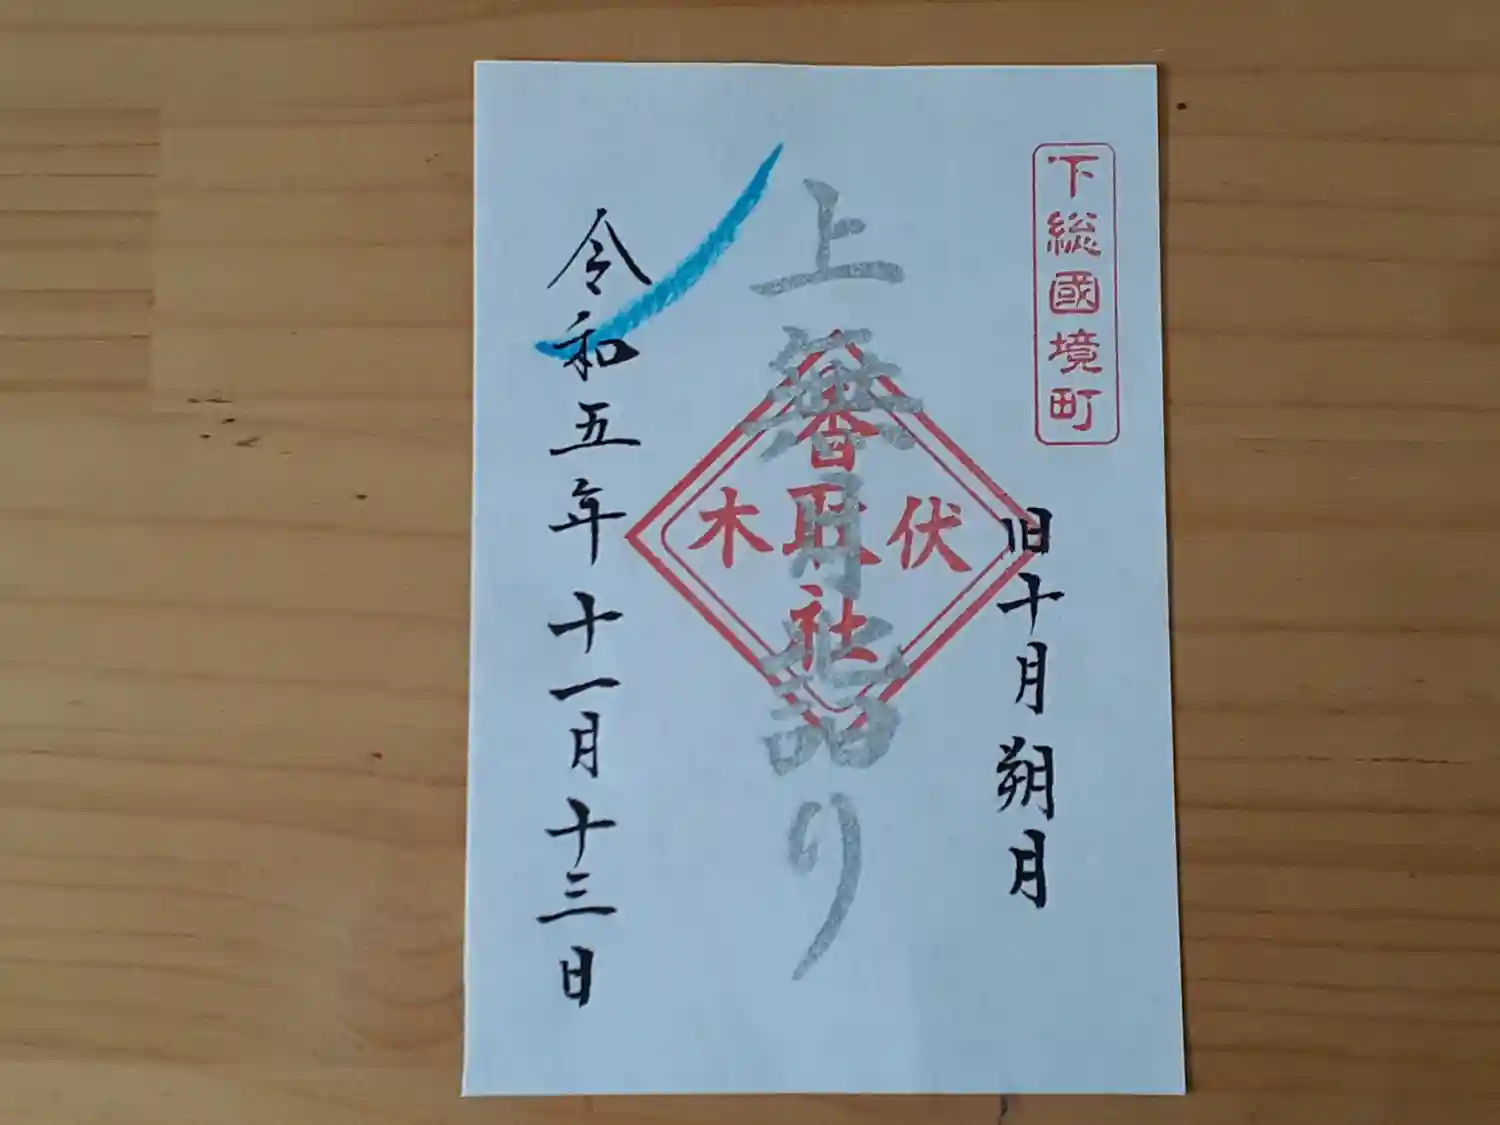 下総國境町
旧十月朔月
上無月詣り
伏木
香取社
令和五年十一月十三日